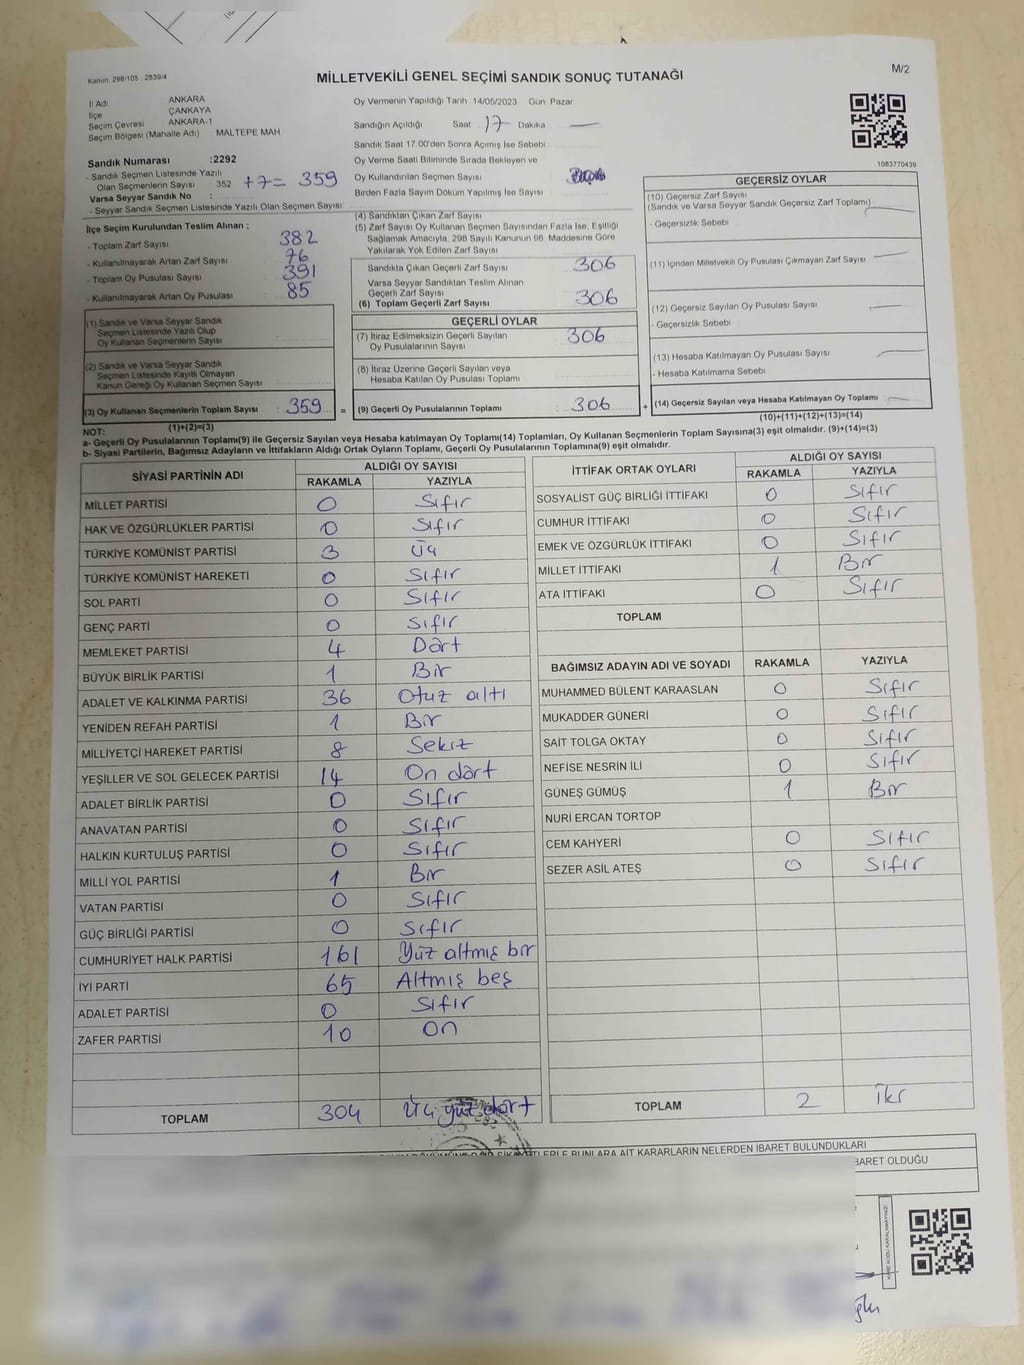 Kanun: 298/105 , 2839/4
MİLLETVEKİLİ GENEL SEÇİMİ SANDIK SONUÇ TUTANAĞI
M/2
İl Adı ANKARA
İlçe ÇANKAYA
Seçim Çevresi ANKARA-1
Seçim Bölgesi (Mahalle Adı) MALTEPE MAH
Sandık Numarası :2292
- Sandık Seçmen Listesinde Yazılı
Olan Seçmenlerin Sayısı 352 +7= 359
Varsa Seyyar Sandık No :
- Seyyar Sandık Seçmen Listesinde Yazılı Olan Seçmen Sayısı:
Oy Vermenin Yapıldığı Tarih 14/05/2023 Gün: Pazar
Sandığın Açıldığı Saat 17 Dakika —
Sandık Saat 17:00'den Sonra Açımış İse Sebebi
Oy Verme Saati Bitiminde Sırada Bekleyen ve
Oy Kullandırılan Seçmen Sayısı
Birden Fazla Sayım Döküm Yapılmış İse Sayısı
1083770439
İlçe Seçim Kurulundan Teslim Alınan ;
- Toplam Zarf Sayısı 382
- Kullanılmayarak Artan Zarf Sayısı 76
- Toplam Oy Pusulası Sayısı 391
- Kullanılmayarak Artan Oy Pusulası 85
(1) Sandık ve Varsa Seyyar Sandık
Seçmen Listesinde Yazılı Olup
Oy Kullanan Seçmenlerin Sayısı
(2) Sandık ve Varsa Seyyar Sandık
Seçmen Listesinde Kayıtlı Olmayan
Kanun Gereği Oy Kullanan Seçmen Sayısı
(3) Oy Kullanan Seçmenlerin Toplam Sayısı 359 =
(1)+(2)=(3)
(4) Sandıktan Çıkan Zarf Sayısı
(5) Zarf Sayısı Oy Kullanan Seçmen Sayısından Fazla İse, Eşitliği
Sağlamak Amacıyla, 298 Sayılı Kanunun 98. Maddesine Göre
Yakılarak Yok Edilen Zarf Sayısı
Sandıkta Çıkan Geçerli Zarf Sayısı 306
Varsa Seyyar Sandıktan Teslim Alınan
Geçerli Zarf Sayısı
(6) Toplam Geçerli Zarf Sayısı 306
GEÇERLİ OYLAR
(7) İtiraz Edilmeksizin Geçerli Sayılan
Oy Pusulalarının Sayısı 306
(8) İtiraz Üzerine Geçerli Sayılan veya
Hesaba Katılan Oy Pusulası Toplamı
(9) Geçerli Oy Pusulalarının Toplamı 306 +
GEÇERSİZ OYLAR
(10) Geçersiz Zarf Sayısı
(Sandık ve Varsa Seyyar Sandık Geçersiz Zarf Toplamı) —
- Geçersizlik Sebebi
(11) İçinden Milletvekili Oy Pusulası Çıkmayan Zarf Sayısı —
(12) Geçersiz Sayılan Oy Pusulası Sayısı —
- Geçersizlik Sebebi
(13) Hesaba Katılmayan Oy Pusulası Sayısı —
- Hesaba Katılmama Sebebi
(14) Geçersiz Sayılan veya Hesaba Katılmayan Oy Toplamı —
(10)+(11)+(12)+(13)=(14)
NOT:
a- Geçerli Oy Pusulalarının Toplamı(9) ile Geçersiz Sayılan veya Hesaba katılmayan Oy Toplamı(14) Toplamları, Oy Kullanan Seçmenlerin Toplam Sayısına(3) eşit olmalıdır. (9)+(14)=(3)
b- Siyasi Partilerin, Bağımsız Adayların ve İttifakların Aldığı Ortak Oyların Toplamı, Geçerli Oy Pusulalarının Toplamına(9) eşit olmalıdır.
SİYASİ PARTİNİN ADI ALDIĞI OY SAYISI
RAKAMLA YAZIYLA
MİLLET PARTİSİ 0 Sıfır
HAK VE ÖZGÜRLÜKLER PARTİSİ 0 Sıfır
TÜRKİYE KOMÜNİST PARTİSİ 3 Üç
TÜRKİYE KOMÜNİST HAREKETİ 0 Sıfır
SOL PARTİ 0 Sıfır
GENÇ PARTİ 0 Sıfır
MEMLEKET PARTİSİ 4 Dört
BÜYÜK BİRLİK PARTİSİ 1 Bir
ADALET VE KALKINMA PARTİSİ 36 Otuz altı
YENİDEN REFAH PARTİSİ 1 Bir
MİLLİYETÇİ HAREKET PARTİSİ 8 Sekiz
YEŞİLLER VE SOL GELECEK PARTİSİ 14 On dört
ADALET BİRLİK PARTİSİ 0 Sıfır
ANAVATAN PARTİSİ 0 Sıfır
HALKIN KURTULUŞ PARTİSİ 0 Sıfır
MİLLİ YOL PARTİSİ 1 Bir
VATAN PARTİSİ 0 Sıfır
GÜÇ BİRLİĞİ PARTİSİ 0 Sıfır
CUMHURİYET HALK PARTİSİ 161 Yüz altmış bir
İYİ PARTİ 65 Altmış beş
ADALET PARTİSİ 0 Sıfır
ZAFER PARTİSİ 10 On
TOPLAM 304 Üç yüz dört
İTTİFAK ORTAK OYLARI ALDIĞI OY SAYISI
RAKAMLA YAZIYLA
SOSYALİST GÜÇ BİRLİĞİ İTTİFAKI 0 Sıfır
CUMHUR İTTİFAKI 0 Sıfır
EMEK VE ÖZGÜRLÜK İTTİFAKI 0 Sıfır
MİLLET İTTİFAKI 1 Bir
ATA İTTİFAKI 0 Sıfır
TOPLAM
BAĞIMSIZ ADAYIN ADI VE SOYADI RAKAMLA YAZIYLA
MUHAMMED BÜLENT KARAASLAN 0 Sıfır
MUKADDER GÜNERİ 0 Sıfır
SAİT TOLGA OKTAY 0 Sıfır
NEFİSE NESRİN İLİ 0 Sıfır
GÜNEŞ GÜMÜŞ 1 Bir
NURİ ERCAN TORTOP
CEM KAHYERİ 0 Sıfır
SEZER ASİL ATEŞ 0 Sıfır
TOPLAM 2 İki
BUNLARA AİT KARARLARIN NELERDEN İBARET BULUNDUKLARI
BARET OLDUĞU